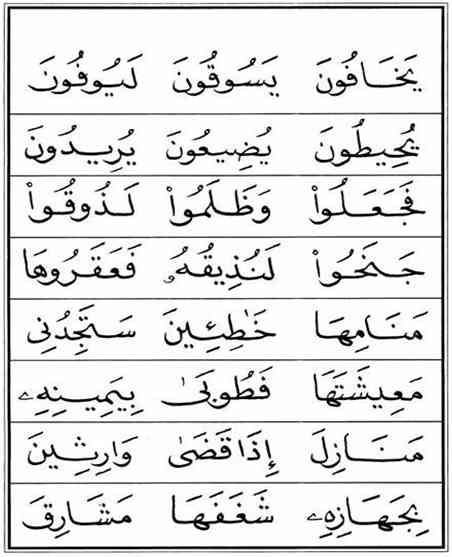 يَخَافُونَ يَسُوقُونَ لَيُوفُونَ
يُحِيطُونَ يُضِيعُونَ يُرِيدُونَ
فَجَعَلُواْ وَظَلَمُواْ لَذُوقُواْ
جَنَحُواْ لَنُذِيقُهُۥ فَعَقَرُوهَا
مَنَامِهَا خَٰطِـِٔينَ سَتَجِدُنِى
مَعِيشَتَهَا فَطُوبَىٰ بِيَمِينِهِۦ
مَنَازِلَ إِذَا قَضَىٰ وَارِثِينَ
بِجَهَازِهِۦ شَغَفَهَا مَشَارِقَ